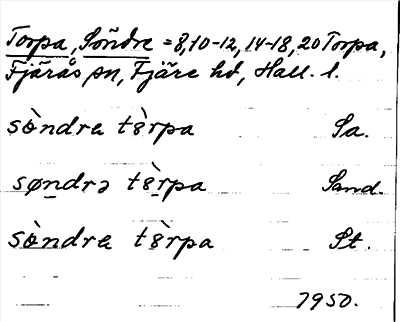 Torpa, Söndre = 8, 10-12, 14-18, 20 Torpa,
Fjärås sn, Fjäre hd, Hall. l.
sòndra tèrpa Sa.
søndrə tèrpa Sand.
sòndra tèrpa St.
1950.